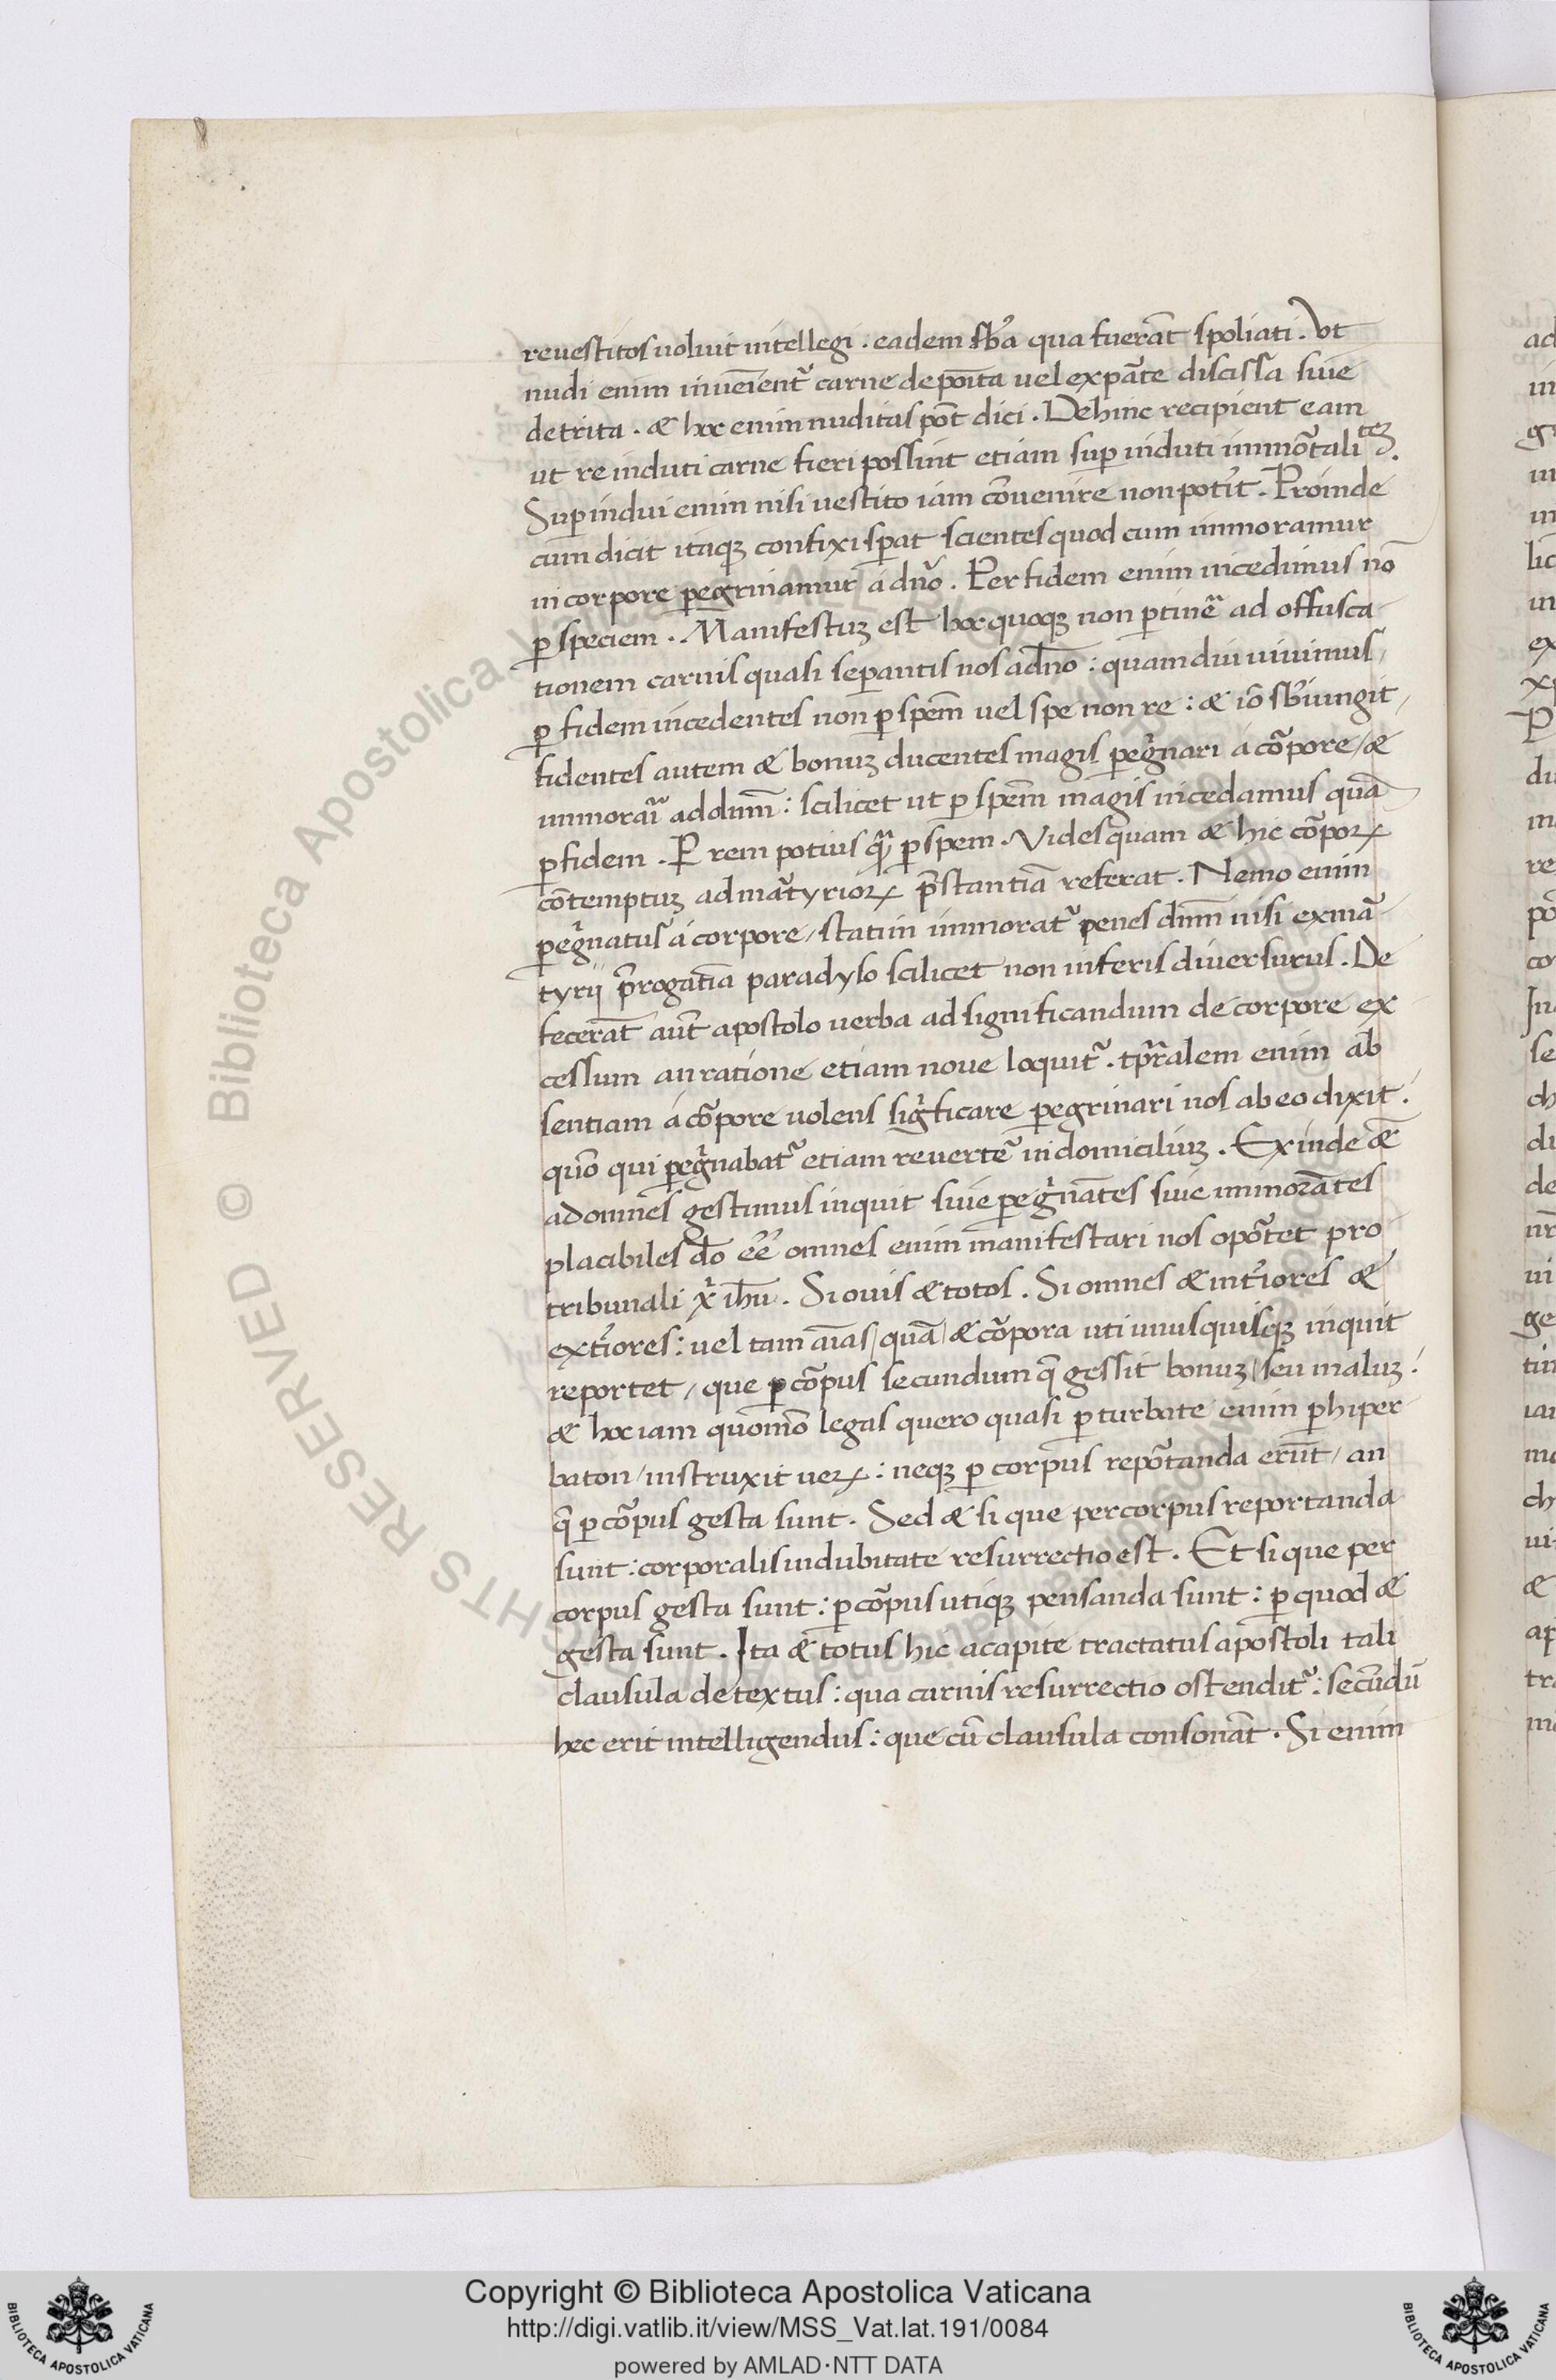 reuestitos uoluit intellegi . eadem sb̃a qua fuerãt spoliati . Vt
nudi enim inueñient᷑ carne depõita uel ex pãte discissa siue
detrita . & hoc enim nuditas põt dici . Dehinc recipient eam
ut re induti carne fieri possint etiam sup̱ induti immõtaliteʒ .
Sup̱ indui enim nisi uestito iam cõuenire non potit̃ . Proinde
cum dicit itaqʒ confixi sp̱at scientes quod cum immoramur
in corpore p̱egrinamur a dnõ . Per fidem enim incedimus nõ
ꝑ speciem . Manifestuʒ est hoc quoqʒ non ꝑtinẽ ad offusca
tionem carnis quasi sep̱antis nos ad̃no : quamdiu uiuimus /
ꝑ fidem incedentes non ꝑ spem̃ uel spe non re : & iõ sb̃iungit /
fidentes autem & bonuʒ ducentes magis ꝑegᷓnari a cõpore / &
immoraĩ addnm̃ : scilicet ut ꝑ spem̃ magis incedamus quã
ꝑ fidem . P rem potius qᷓ ꝑ spem . Vides quam & hic cõpoꝝ
cõtemptuʒ ad mãtyrioꝝ p̃stantiã referat . Nemo enim
ꝑegᷓnatus a corpore / statim immorat᷑ penes dnm̃ nisi ex mã
tyrij p̃rogatĩa paradyso scilicet non inferis diuersurus . De
fecerãt aut̃ apostolo uerba ad significandum de corpore ex
cessum an ratione etiam noue loquit᷑ . tp̃ralem enim ab
sentiam a cõpore uolens sigᷓficare ꝑegrinari nos ab eo dixit .
quõ qui ꝑegᷓnabat᷑ etiam reuertẽ in domiciliuʒ . Exinde &̃
ad omnes gestimus inquit siue ꝑegᷓnãtes siue immorãtes
placibiles dõ eẽ omnes enim manifestari nos opõtet pro
tribunali xᷓ ihũ . Si ouis & totos . Si omnes & int̃iores &
ext̃iores : uel tam aĩas / quã / & cõpora uti unusquisqʒ inquit
reportet / que ꝑ cõpus secundum q̃ gessit bonuʒ / seu maluʒ .
& hoc iam quomõ legas quero quasi ꝑ turbate enim ꝑ hiper
baton / instruxit ueꝝ : neqʒ ꝑ corpus repõtanda erũt / an
q̃ ꝑ cõpus gesta sunt . Sed & si que per corpus reportanda
sunt : corporalis indubitate resurrectio est . Et si que per
corpus gesta sunt : ꝑ cõpus utiqʒ pensanda sunt : ꝑ quod &
gesta sunt . Ita & totus hic a capite tractatus apostoli tali
clausula detextus : qua carnis resurrectio ostendit᷑ : secũdũ
hec erit intelligendus : que cũ clausula consonãt . Si enim
© Biblioteca Apostolica Vaticana
ALL RIGHTS RESERVED
Copyright © Biblioteca Apostolica Vaticana
http://digi.vatlib.it/view/MSS_Vat.lat.191/0084
powered by AMLAD·NTT DATA
BIBLIOTECA APOSTOLICA VATICANA
BIBLIOTECA APOSTOLICA VATICANA